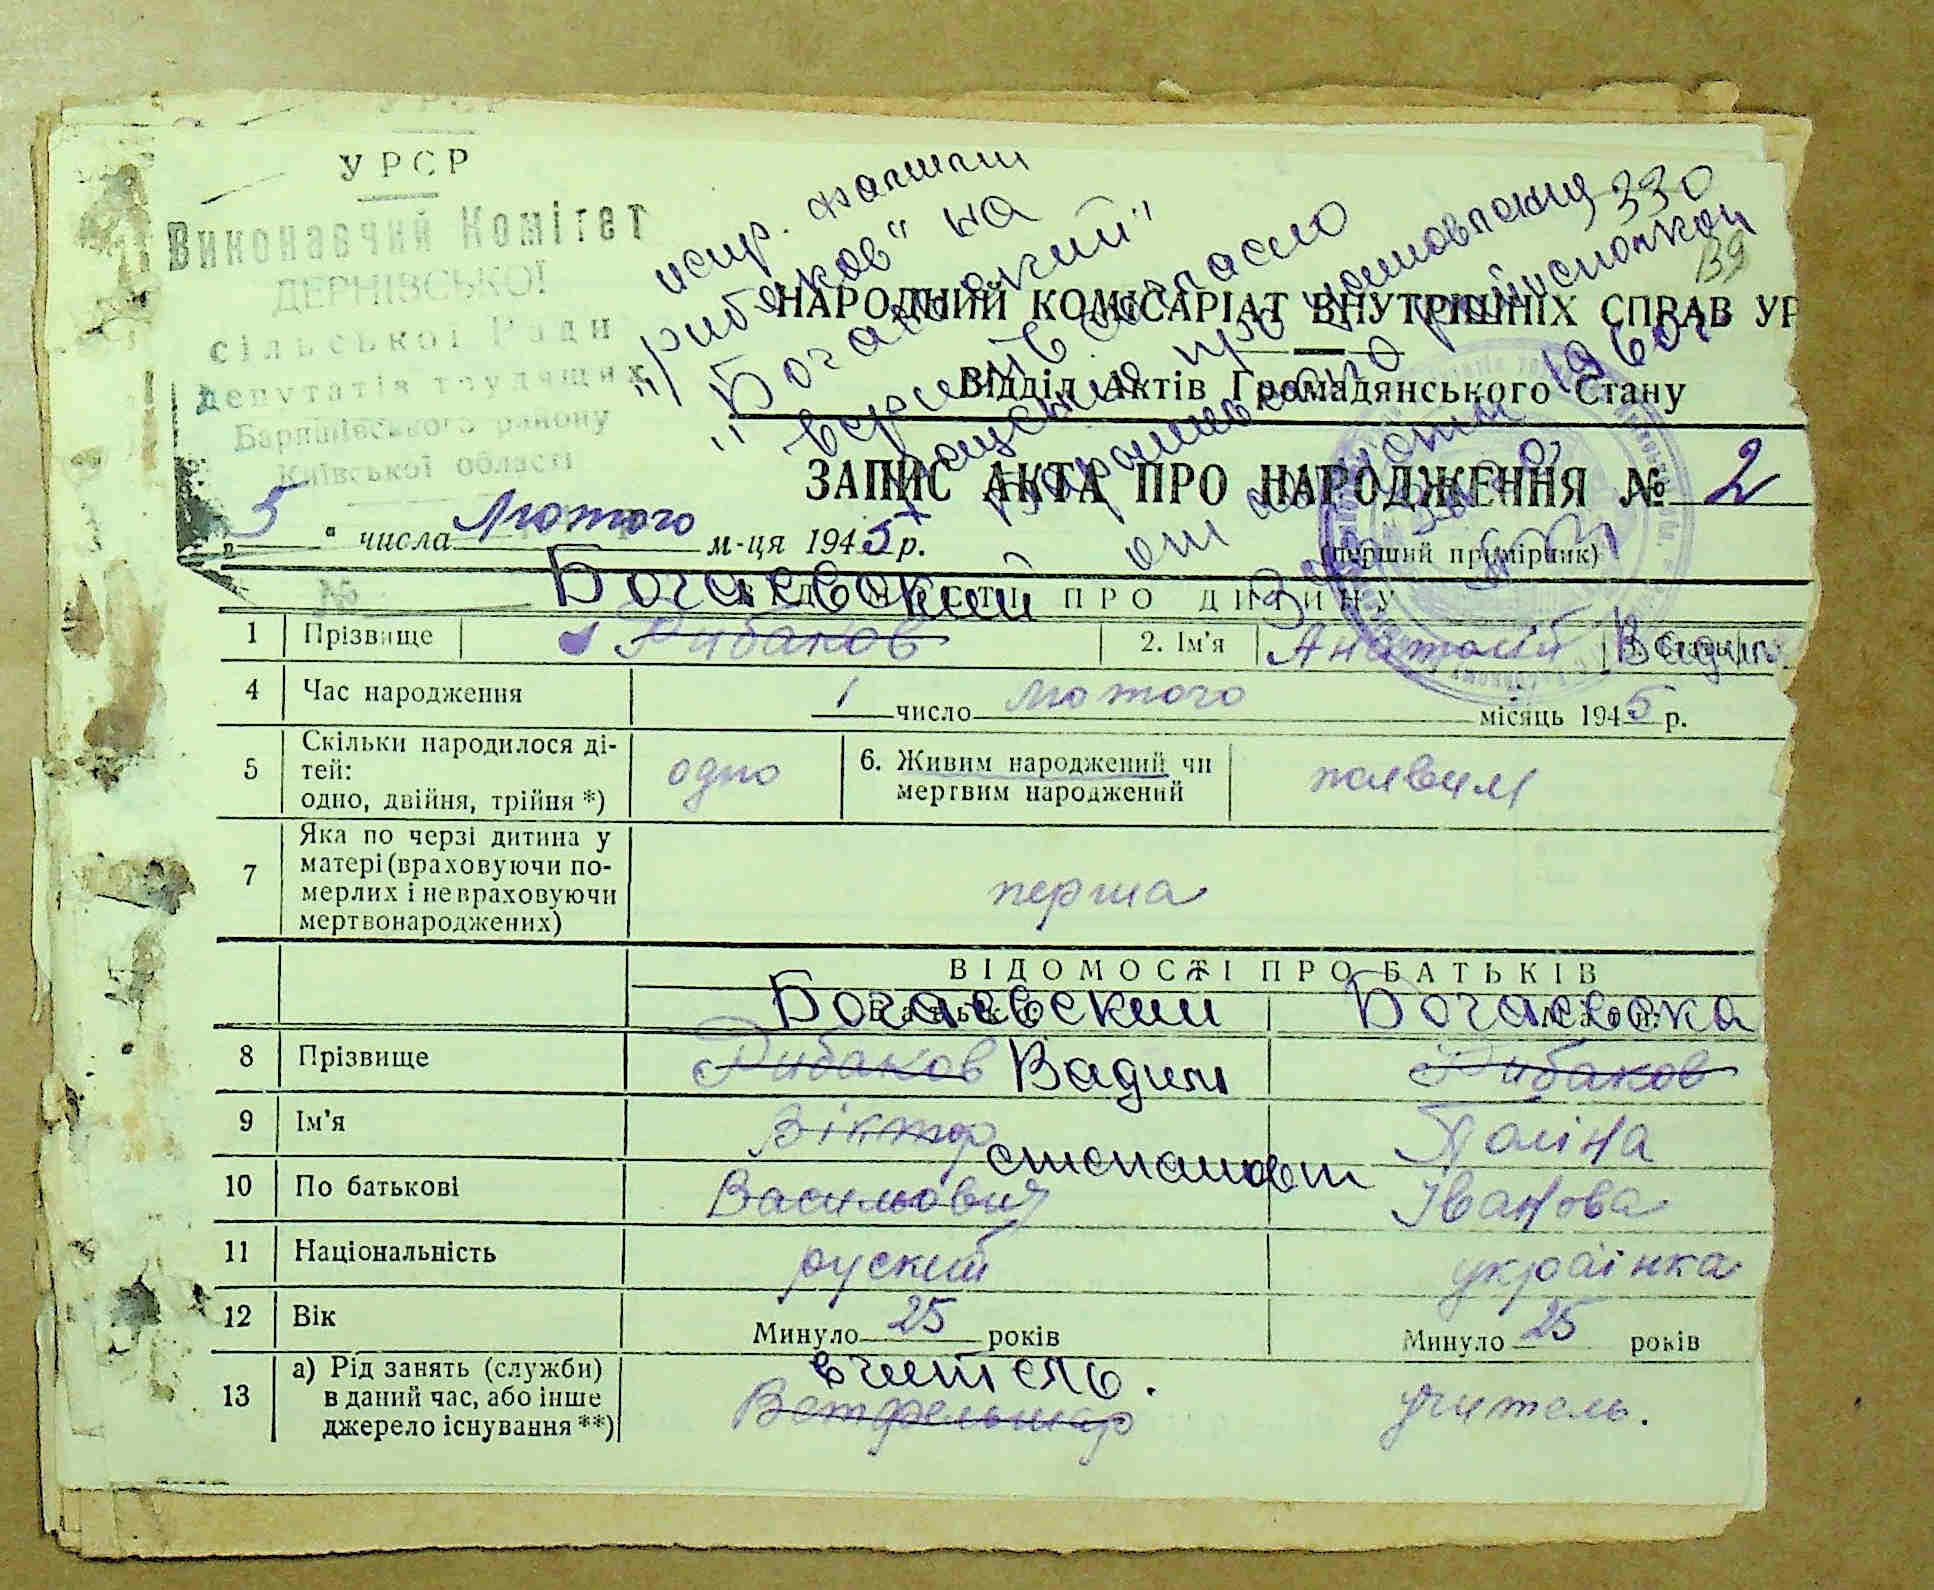 УРСР
Виконавчий Комітет
ДЕРНІВСЬКОЇ
сільської Ради
депутатів трудящих
Баришівського району
Київської області
№
330
139
испр. фамилии
"Рибаков" на
"Богаевский"
согласно
1960 г.
НАРОДНИЙ КОМІСАРІАТ ВНУТРІШНІХ СПРАВ УР
Відділ Актів Громадянського Стану
ЗАПИС АКТА ПРО НАРОДЖЕННЯ № 2
"5" числа Лютого м-ця 1945 р.
(перший примірник)
Богаевский
ВІДОМОСТІ ПРО ДИТИНУ
1 Прізвище Рибаков 2. Ім'я Анатолій Вадим
4 Час народження 1 число лютого місяць 1945 р.
5 Скільки народилося ді-
тей:
одно, двійня, трійня *) одно 6. Живим народжений чи
мертвим народжений живим
7 Яка по черзі дитина у
матері (враховуючи по-
мерлих і не враховуючи
мертвонароджених) перша
ВІДОМОСТІ ПРО БАТЬКІВ
Богаевский Богаевска
8 Прізвище Рибаков Вадим Рибаков
9 Ім'я Віктор Поліна
степанов
10 По батькові Васильович Іванова
11 Національність руский українка
12 Вік Минуло 25 років Минуло 25 років
вчитель.
13 а) Рід занять (служби)
в даний час, або інше
джерело існування **) Ветфельшер учитель.